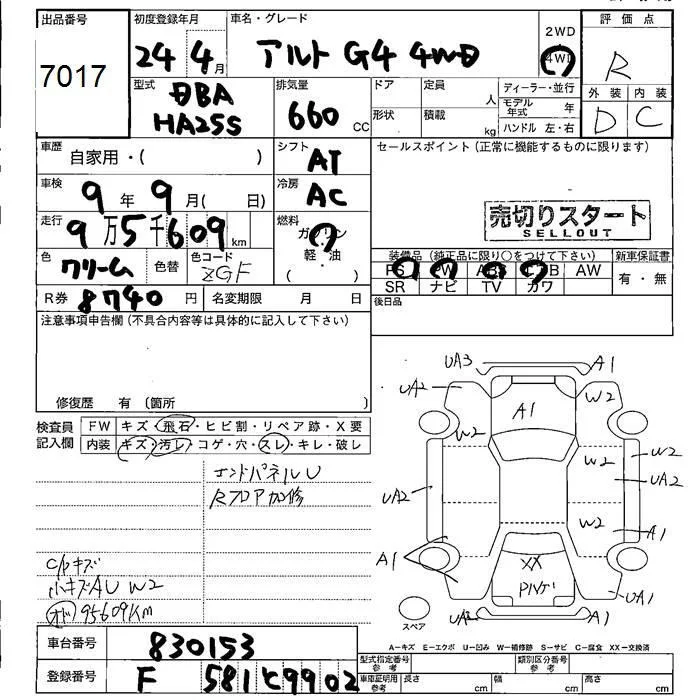 出品番号
7017
初度登録年月
24 4月
車名・グレード
アルト G4 4WD
2WD
4WD
評価点
R
外装 内装
D C
型式
DBA
HA25S
排気量
660 CC
ドア
形状
定員 人
積載 kg
ディーラー・並行
モデル年式 年
ハンドル 左・右
車歴
自家用・( )
シフト
AT
セールスポイント (正常に機能するものに限ります)
車検
9年 9月( 日)
冷房
AC
走行
9万5千609km
燃料
ガソリン
軽・油
( ・ )
売切りスタート
SELLOUT
色
クリーム
色替
色コード
ZGF
装備品 (純正品に限り○をつけて下さい)
新車保証書
PS PW ABS エアB AW
SR ナビ TV カワ
有・無
R券
8740円
名変期限 月 日
後日品
注意事項申告欄 (不具合内容等は具体的に記入して下さい)
修復歴 有 (箇所 )
検査員
記入欄
FW キズ・飛石・ヒビ割・リペア跡・X要
内装 キズ・汚レ・コゲ・穴・スレ・キレ・破レ
エンドパネルU
Rフロア加修
C/Pキズ
小キズAU W2
オド 95609Km
UA3
A1
UA2
W2
A1
W2
W2
W2
UA2
UA2
W2
A1
A1
XX
UA1
UA2
A1
スペア
A-キズ E-エクボ U-凹み W-補修跡 S-サビ C-腐食 XX-交換済
車台番号
830153
登録番号
F 581 と 9902
型式指定番号
参考
類別区分番号
参考
車庫証明用
参考
長さ cm
幅 cm
高さ cm